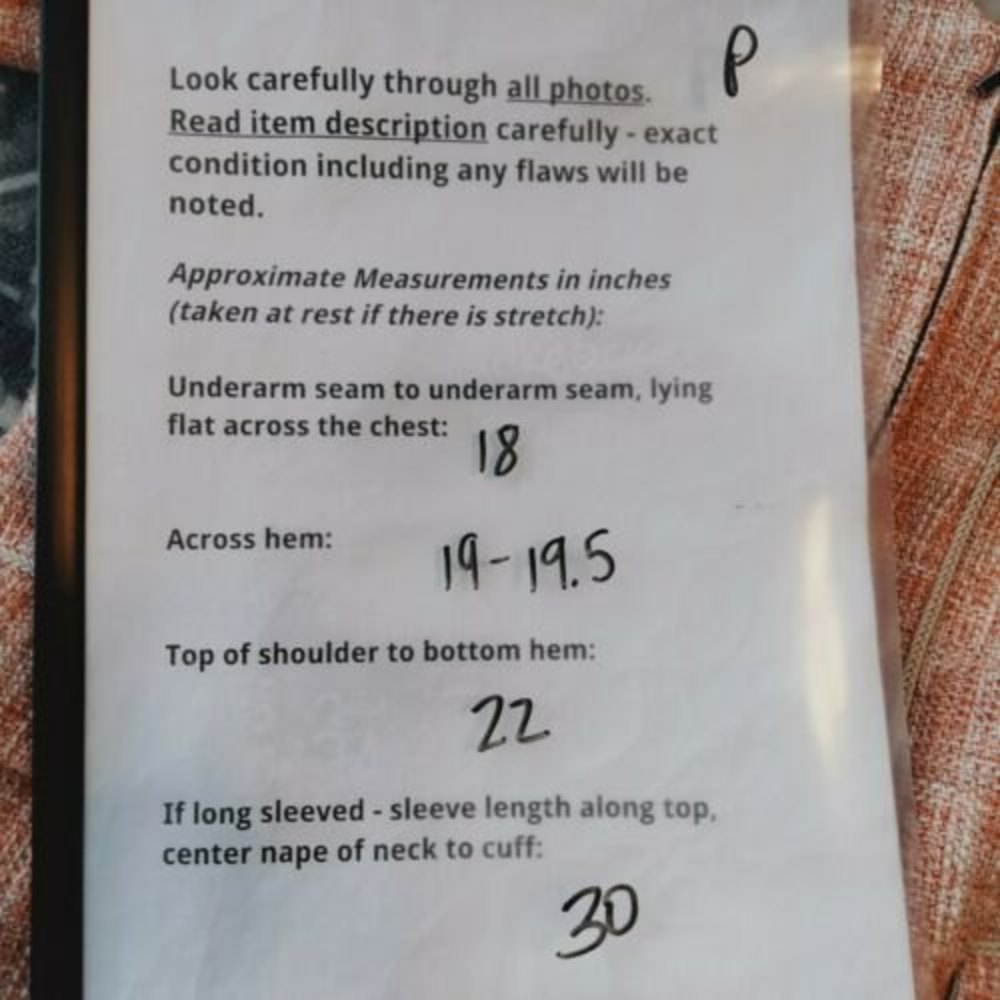 P
Look carefully through all photos.
Read item description carefully - exact
condition including any flaws will be
noted.
Approximate Measurements in inches
(taken at rest if there is stretch):
Underarm seam to underarm seam, lying
flat across the chest: 18
Across hem: 19-19.5
Top of shoulder to bottom hem:
22
If long sleeved - sleeve length along top,
center nape of neck to cuff:
30